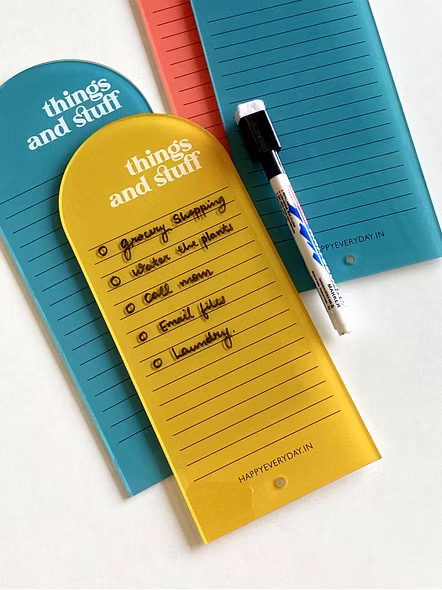 things
and stuff
things
and stuff
Grocery Shopping
Water the plants
Call mom
Email files
Laundry.
HAPPYEVERYDAY.IN
HAPPYEVERYDAY.IN
MARKER